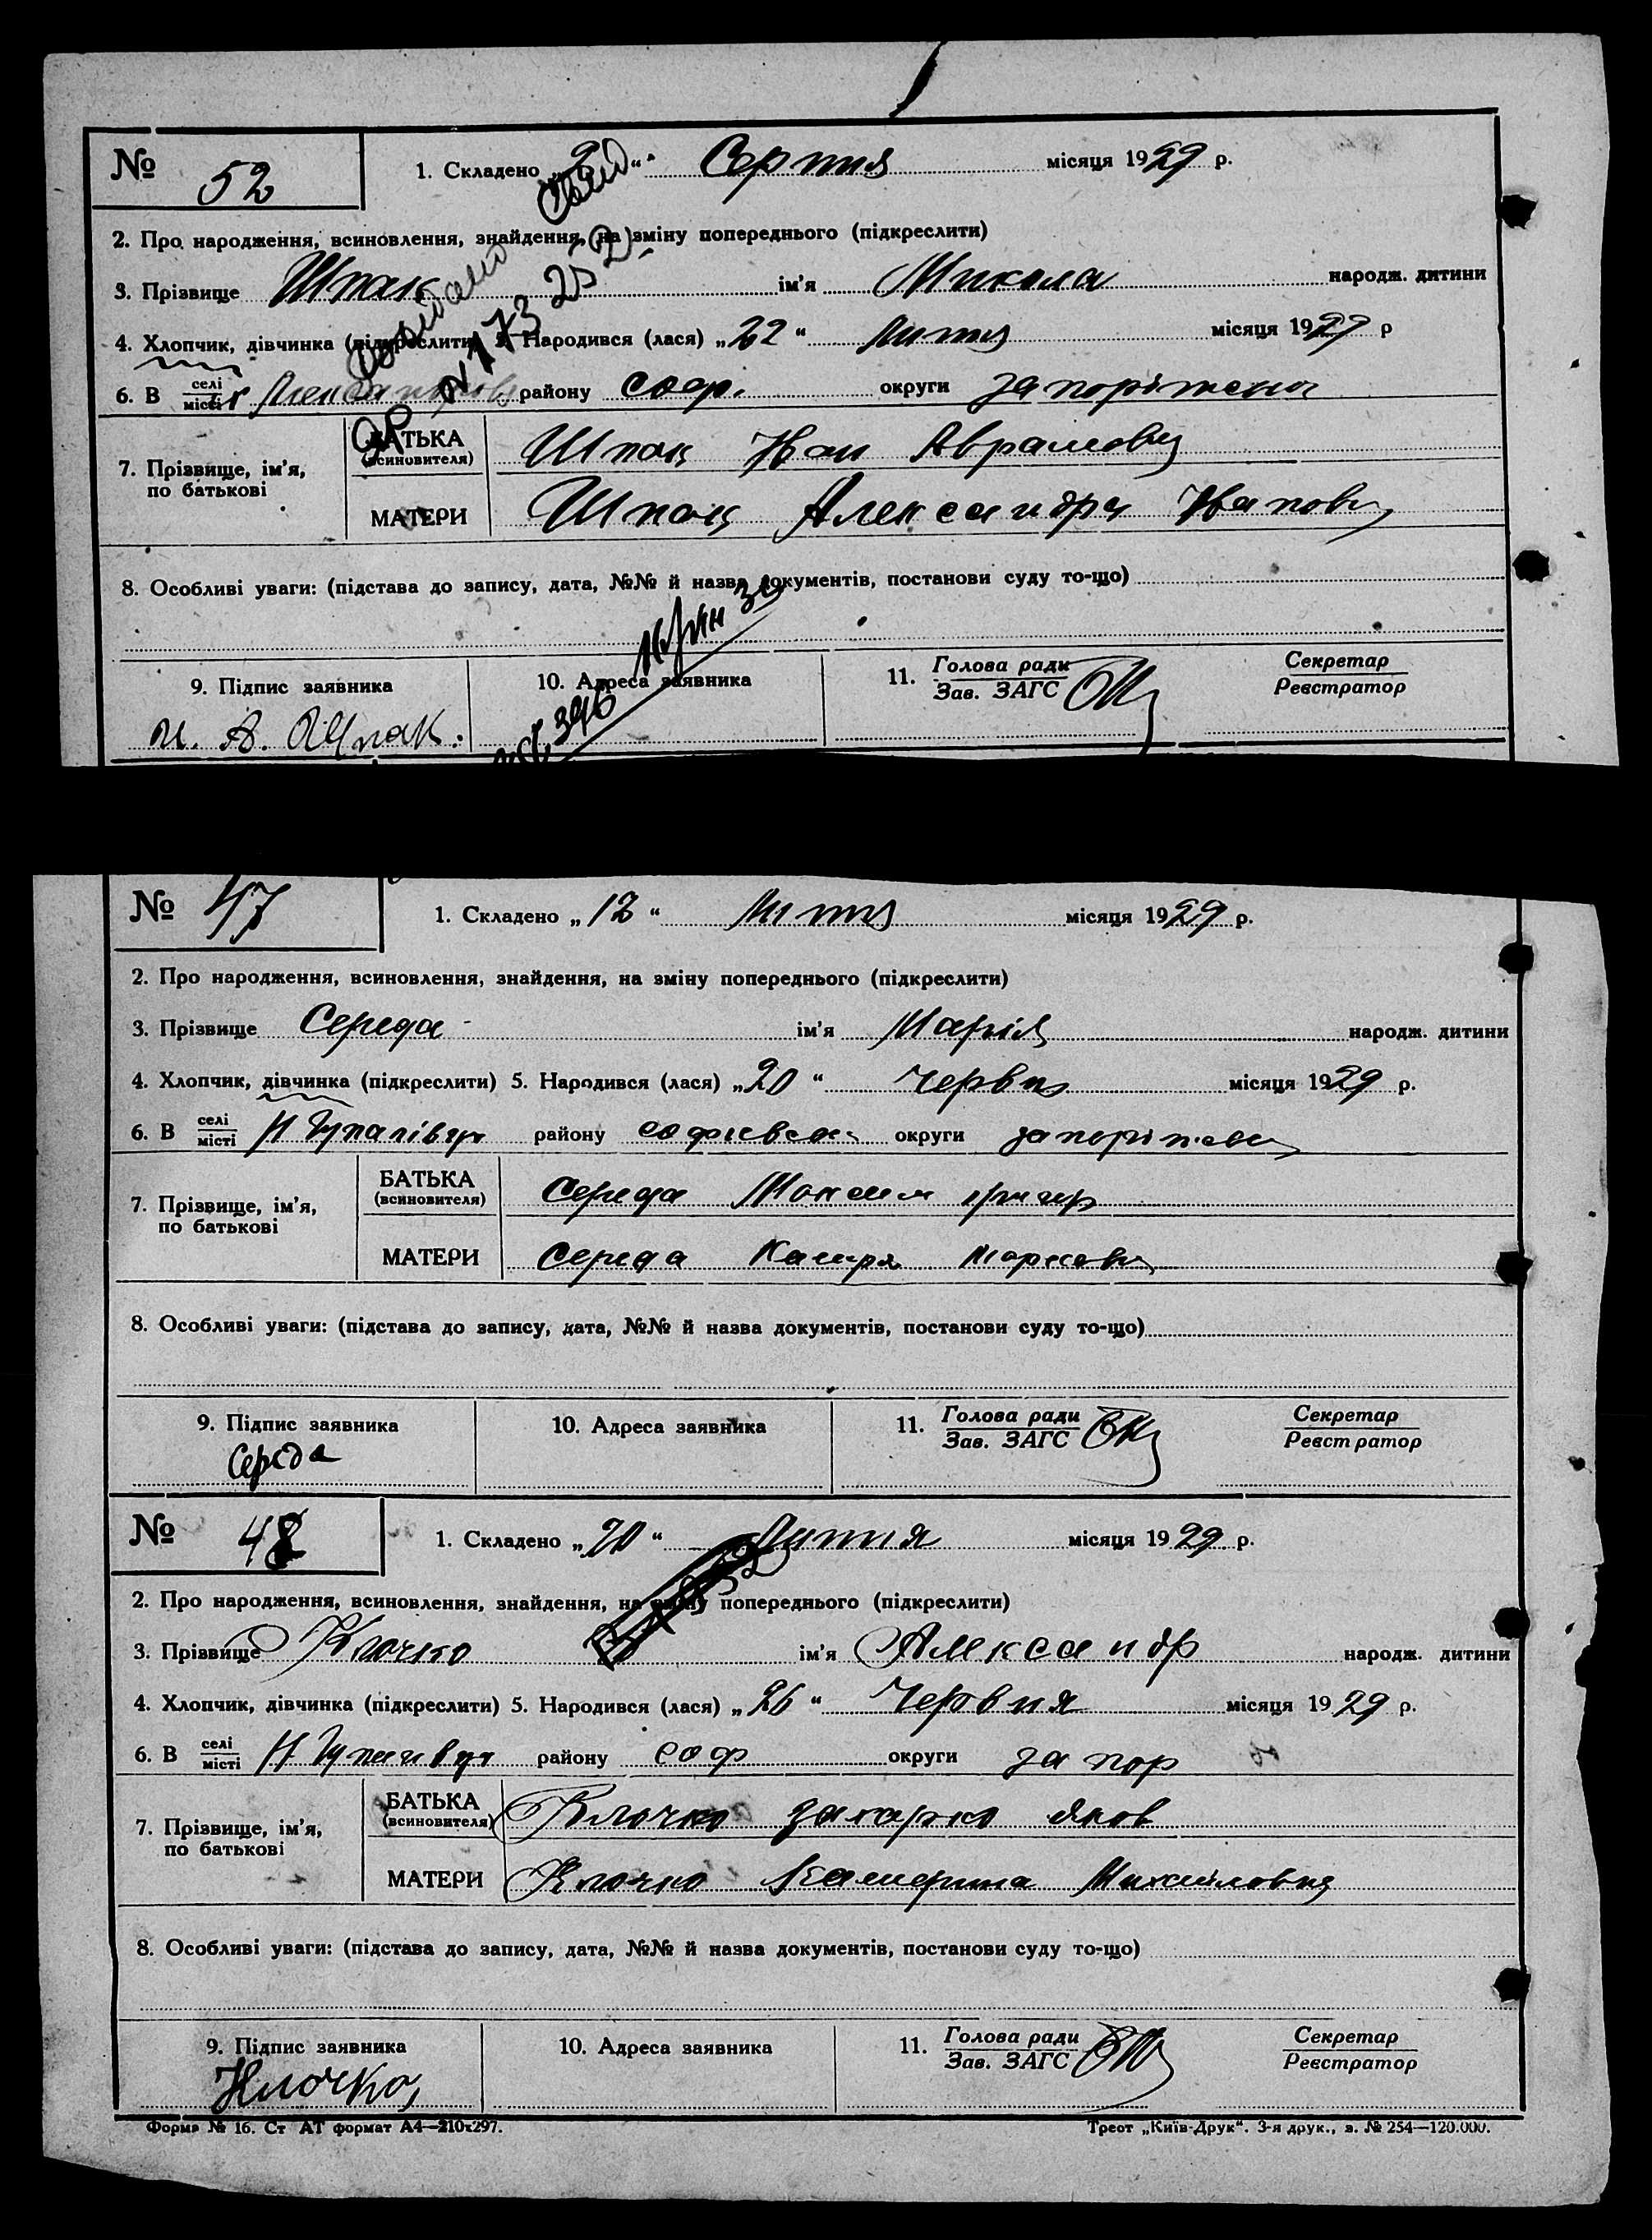 № 52
1. Складено „2“ Серпня місяця 1929 р.
2. Про народження, всиновлення, знайдення, на зміну попереднього (підкреслити)
3. Прізвище Шпак ім'я Микола народж. дитини
4. Хлопчик, дівчинка (підкреслити) 5. Народився (лася) „22“ Липня місяця 1929 р
6. В селі місті району соф. округи запоріжської
7. Прізвище, ім'я, по батькові
БАТЬКА (всиновителя) Шпак Иван Аврамович
МАТЕРИ Шпак Александра Ивановн
8. Особливі уваги: (підстава до запису, дата, №№ й назва документів, постанови суду то-що)
9. Підпис заявника 10. Адреса заявника 11. Голова ради Зав. ЗАГС Секретар Реєстратор
и. А. Шпак.
№ 47
1. Складено „12“ Липня місяця 1929 р.
2. Про народження, всиновлення, знайдення, на зміну попереднього (підкреслити)
3. Прізвище Середа ім'я Марія народж. дитини
4. Хлопчик, дівчинка (підкреслити) 5. Народився (лася) „20“ Червня місяця 1929 р.
6. В селі місті Н Гупалівці району софієвськ округи запоріжськ
7. Прізвище, ім'я, по батькові
БАТЬКА (всиновителя) Середа Максим григор
МАТЕРИ Середа Марковн
8. Особливі уваги: (підстава до запису, дата, №№ й назва документів, постанови суду то-що)
9. Підпис заявника 10. Адреса заявника 11. Голова ради Зав. ЗАГС Секретар Реєстратор
Середа
№ 48
1. Складено „20“ Липня місяця 1929 р.
2. Про народження, всиновлення, знайдення, на зміну попереднього (підкреслити)
3. Прізвище Клочко ім'я Александр народж. дитини
4. Хлопчик, дівчинка (підкреслити) 5. Народився (лася) „26“ Червня місяця 1929 р.
6. В селі місті Н. Гупалівці району соф округи запор
7. Прізвище, ім'я, по батькові
БАТЬКА (всиновителя) Клочко Захарко Яков
МАТЕРИ Клочко Катерина Михайловна
8. Особливі уваги: (підстава до запису, дата, №№ й назва документів, постанови суду то-що)
9. Підпис заявника 10. Адреса заявника 11. Голова ради Зав. ЗАГС Секретар Реєстратор
Клочко
Форма № 16. Ст АТ формат А4—210х297. Трест „Київ-Друк“. 3-я друк., з. № 254—120.000.